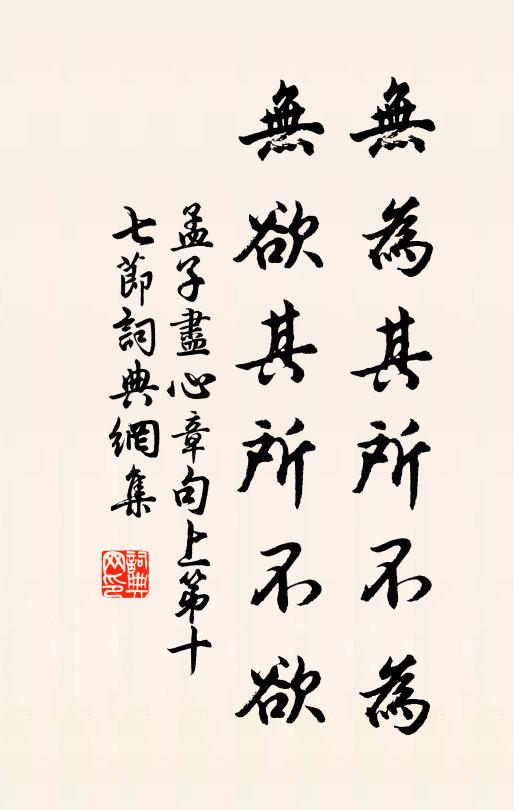 無為其所不為
無欲其所不欲
孟子盡心章句上第十
七節詞典網集
詞典網印